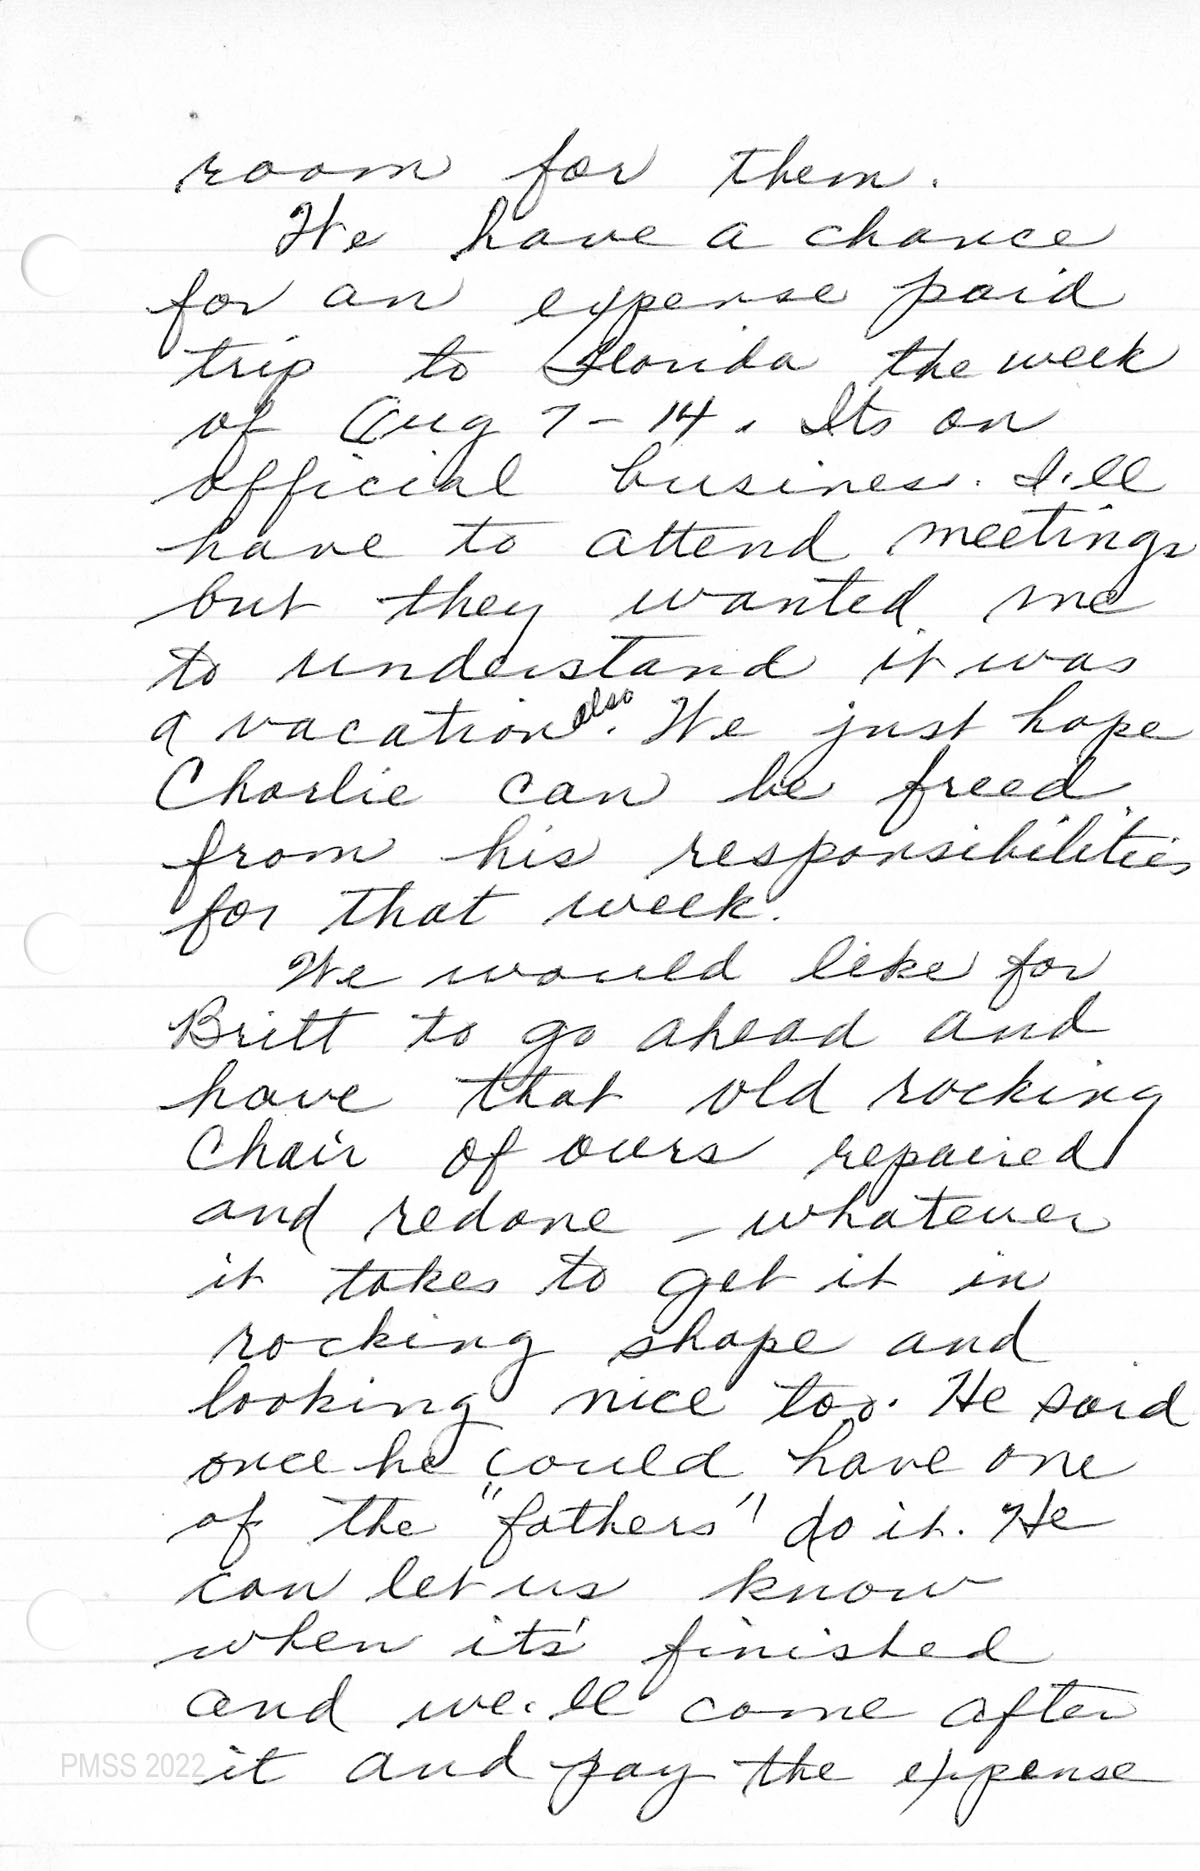 room for them.
We have a chance
for an expense paid
trip to Florida the week
of Aug 7-14. Its on
official busines. I'll
have to attend meetings
but they wanted me
to understand it was
a vacation also. We just hope
Charlie can be freed
from his responsibilities
for that week.
We would like for
Britt to go ahead and
have that old rocking
Chair of ours repaired
and redone - whatever
it takes to get it in
rocking shape and
looking nice too. He said
once he could have one
of the "fathers" do it. He
can let us know
when its' finished
and we'll come after
it and pay the expense
PMSS 2022